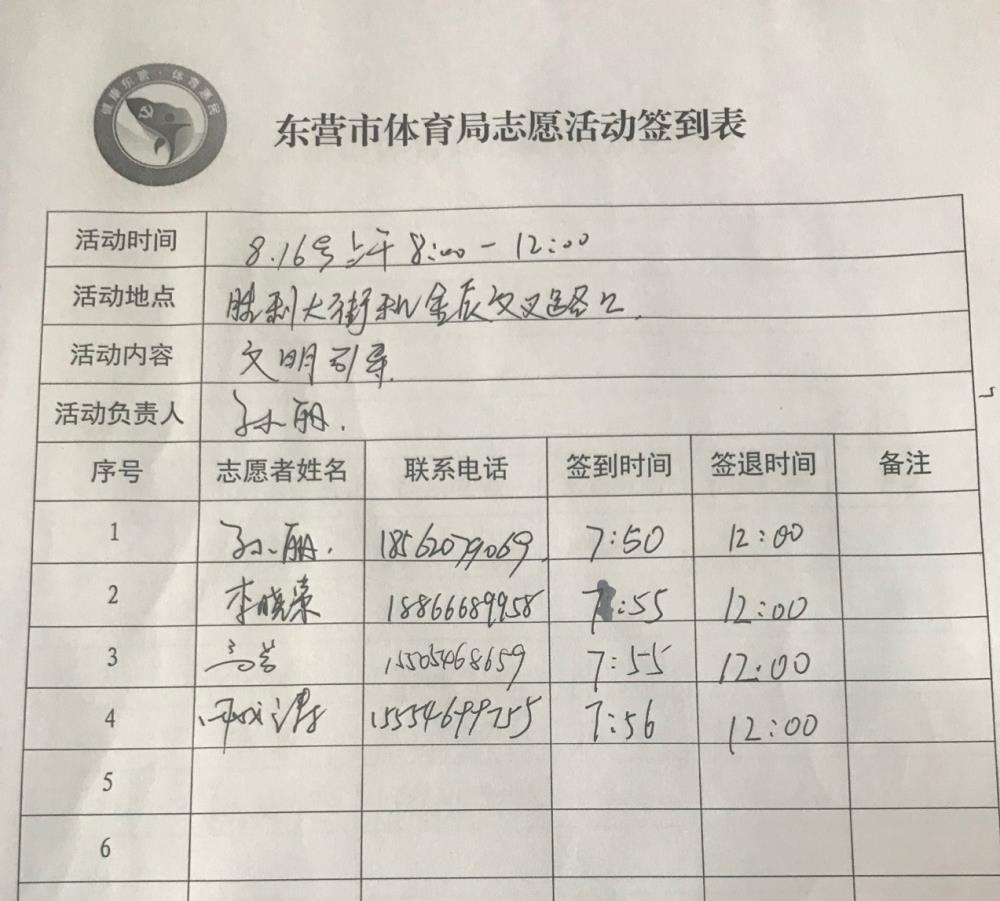 健康东营·体育惠民
东营市体育局志愿活动签到表
活动时间 8.16号上午 8:00-12:00
活动地点 胜利大街和金辰交叉路口.
活动内容 文明引导.
活动负责人 孙丽.
序号 志愿者姓名 联系电话 签到时间 签退时间 备注
1 孙丽. 18562079069 7:50 12:00
2 李晓荣 18866689958 7:55 12:00
3 15505468659 7:55 12:00
4 15554699755 7:56 12:00
5
6